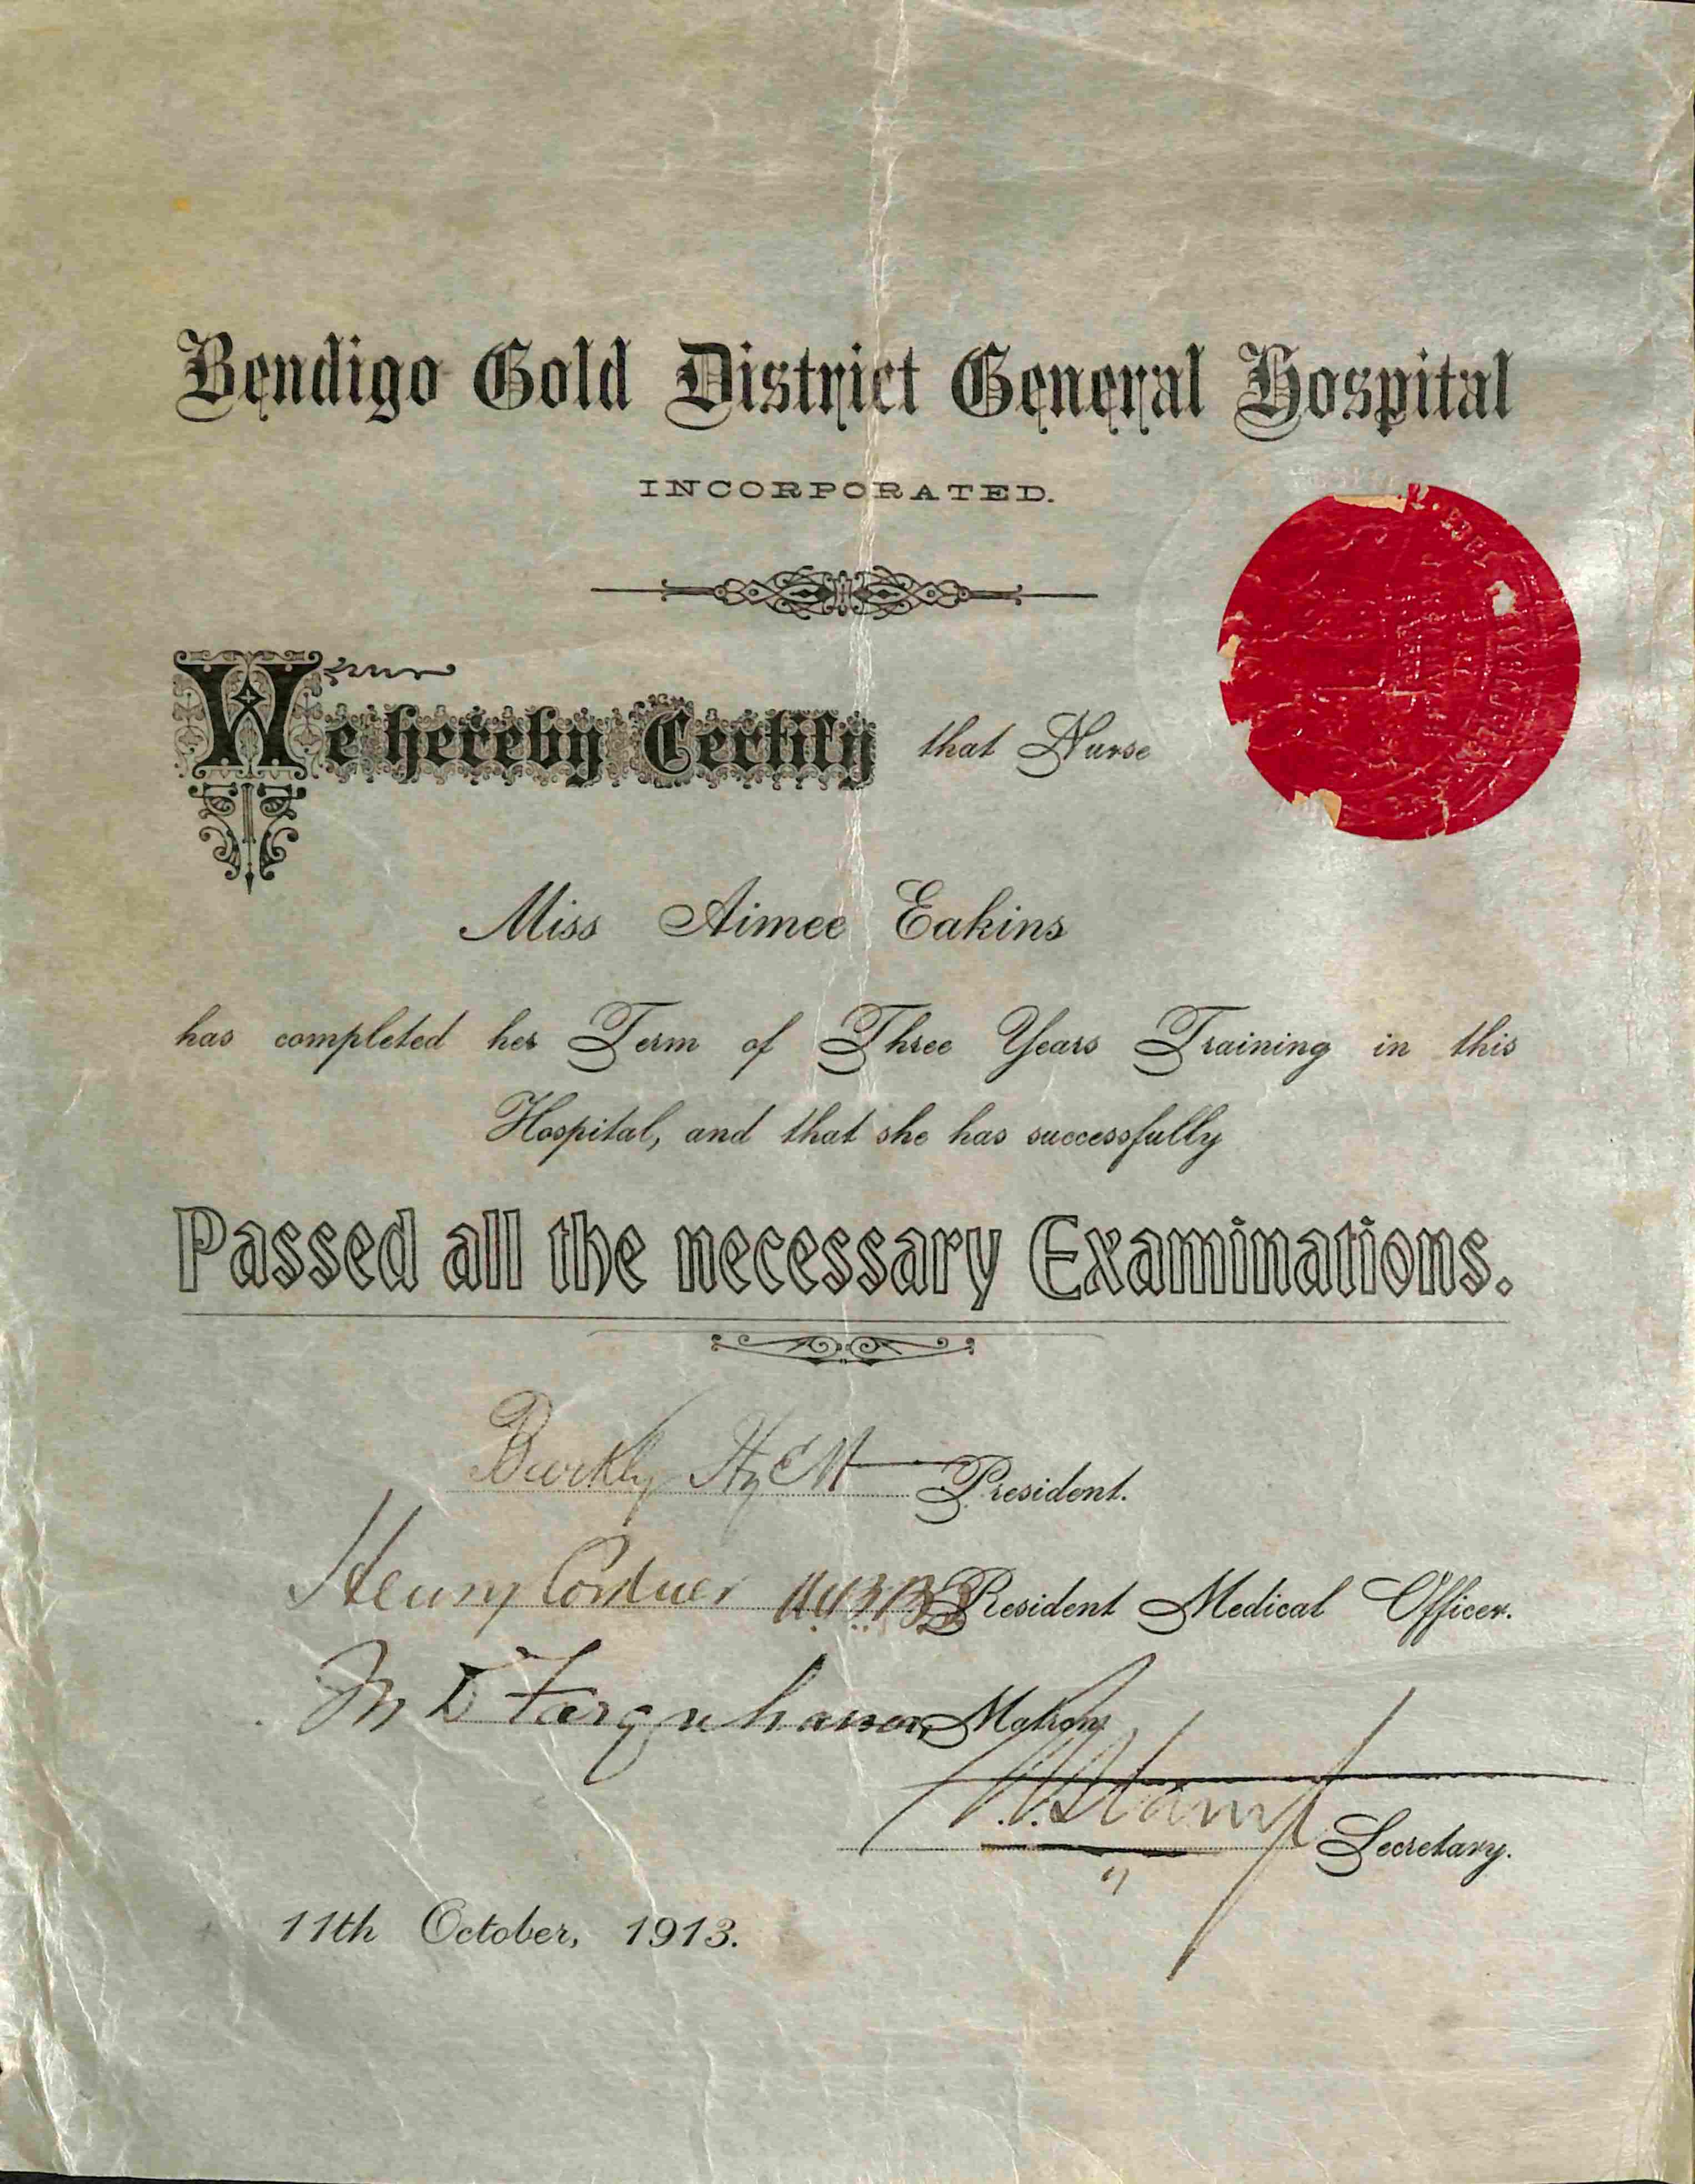 Bendigo Gold District General Hospital
INCORPORATED.
We hereby Certify that Nurse
Miss Aimee Eakins
has completed her Term of Three Years Training in this
Hospital, and that she has successfully
Passed all the necessary Examinations.
President.
Henry Cordner M.B. B.S. Resident Medical Officer.
M D Farquharson Matron
Secretary.
11th October, 1913.